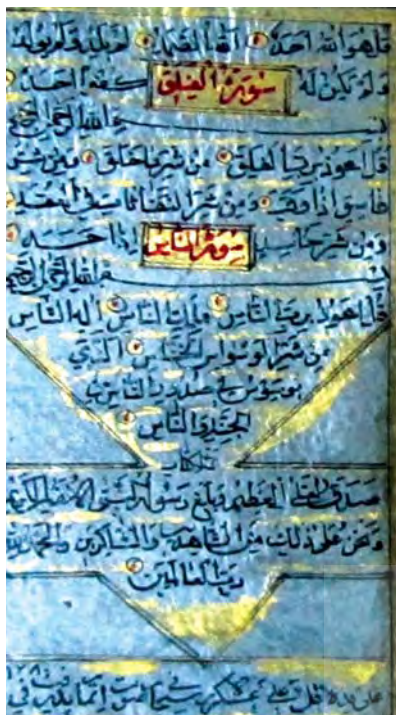 قل هو الله احد الله الصمد لم يلد ولم يولد
ولم يكن له كفوا احد
سورة الفلق
بسم الله الرحمن الرحيم
قل اعوذ برب الفلق من شر ما خلق ومن شر
غاسق اذا وقب ومن شر النفاثات في العقد
ومن شر حاسد اذا حسد
سورة الناس
بسم الله الرحمن الرحيم
قل اعوذ برب الناس ملك الناس اله الناس
من شر الوسواس الخناس الذي
يوسوس في صدور الناس من
الجنة والناس
صدق الله العظيم وبلغ رسوله النبي الكريم
ونحن على ذلك من الشاهدين والشاكرين والحمد لله
رب العالمين